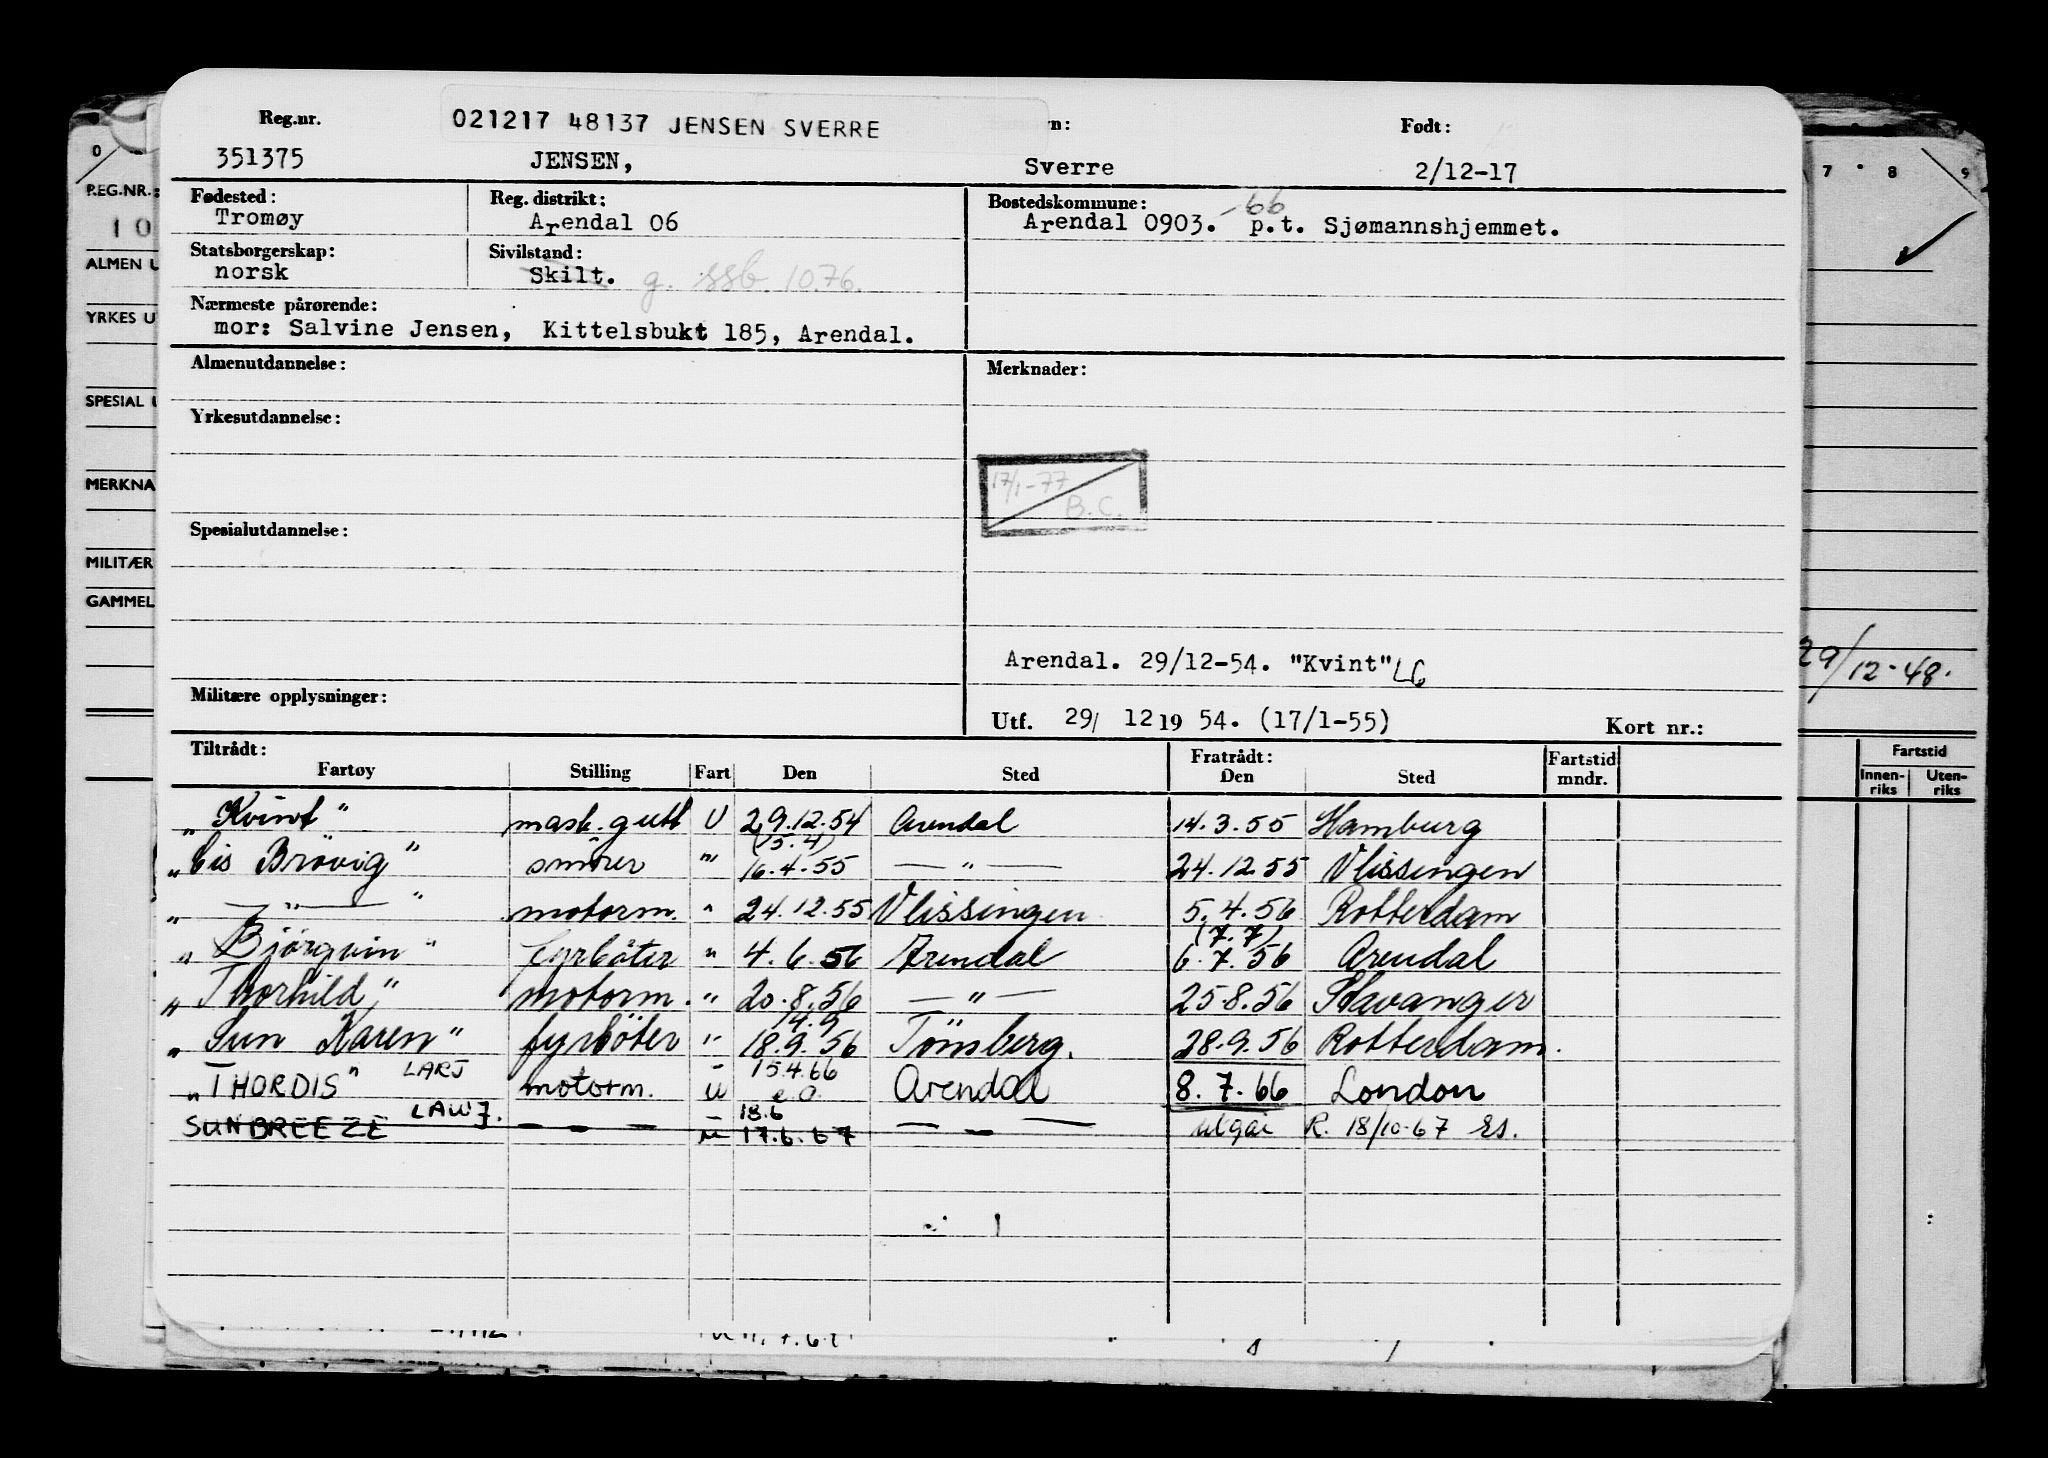 Reg.nr. 021217 48137 JENSEN SVERRE n: Født:
351375 JENSEN, Sverre 2/12-17
Fødested: Reg. distrikt: Bostedskommune: -66
Tromøy Arendal 06 Arendal 0903. p.t. Sjømannshjemmet.
Statsborgerskap: Sivilstand:
norsk Skilt. g. ssb. 10.76.
Nærmeste pårørende:
mor: Salvine Jensen, Kittelsbukt 185, Arendal.
Almenutdannelse: Merknader:
Yrkesutdannelse:
17/1-77
B.C.
Spesialutdannelse:
Arendal. 29/12-54. "Kvint" LG
Militære opplysninger:
Utf. 29/ 12 19 54. (17/1-55) Kort nr.:
Tiltrådt: Fratrådt: Fartstid
Fartøy Stilling Fart Den Sted Den Sted mndr.
„Kvint" mask.gutt U 29.12.54 Arendal 14.3.55 Hamburg
(15.4)
„Cis Brövig" smörer " 16.4.55 — " — 24.12.55 Vlissingen
„ — " — " motorm. " 24.12.55 Vlissingen 5.4.56 Rotterdam
(7.7)
„Björgvin" fyrböter " 4.6.56 Arendal 6.7.56 Arendal
„Thorhild" motorm. " 20.8.56 — " — 25.8.56 Stavanger
14.9
„Sun Karen" fyrböter " 18.9.56 Tönsberg. 28.9.56 Rotterdam.
15.4.66
„THORDIS" LARJ motorm. U Arendal 8.7.66 London
18.6
SUNBREEZE LAWJ. — — — U 17.6.67 — — — utgår R. 18/10-67 Es.
0 7 8 9
REG.NR.:
10
ALMEN U
YRKES U
SPESIAL U
MERKNA
MILITÆR
GAMMEL
29/12-48.
Fartstid
Innen- Uten-
riks riks